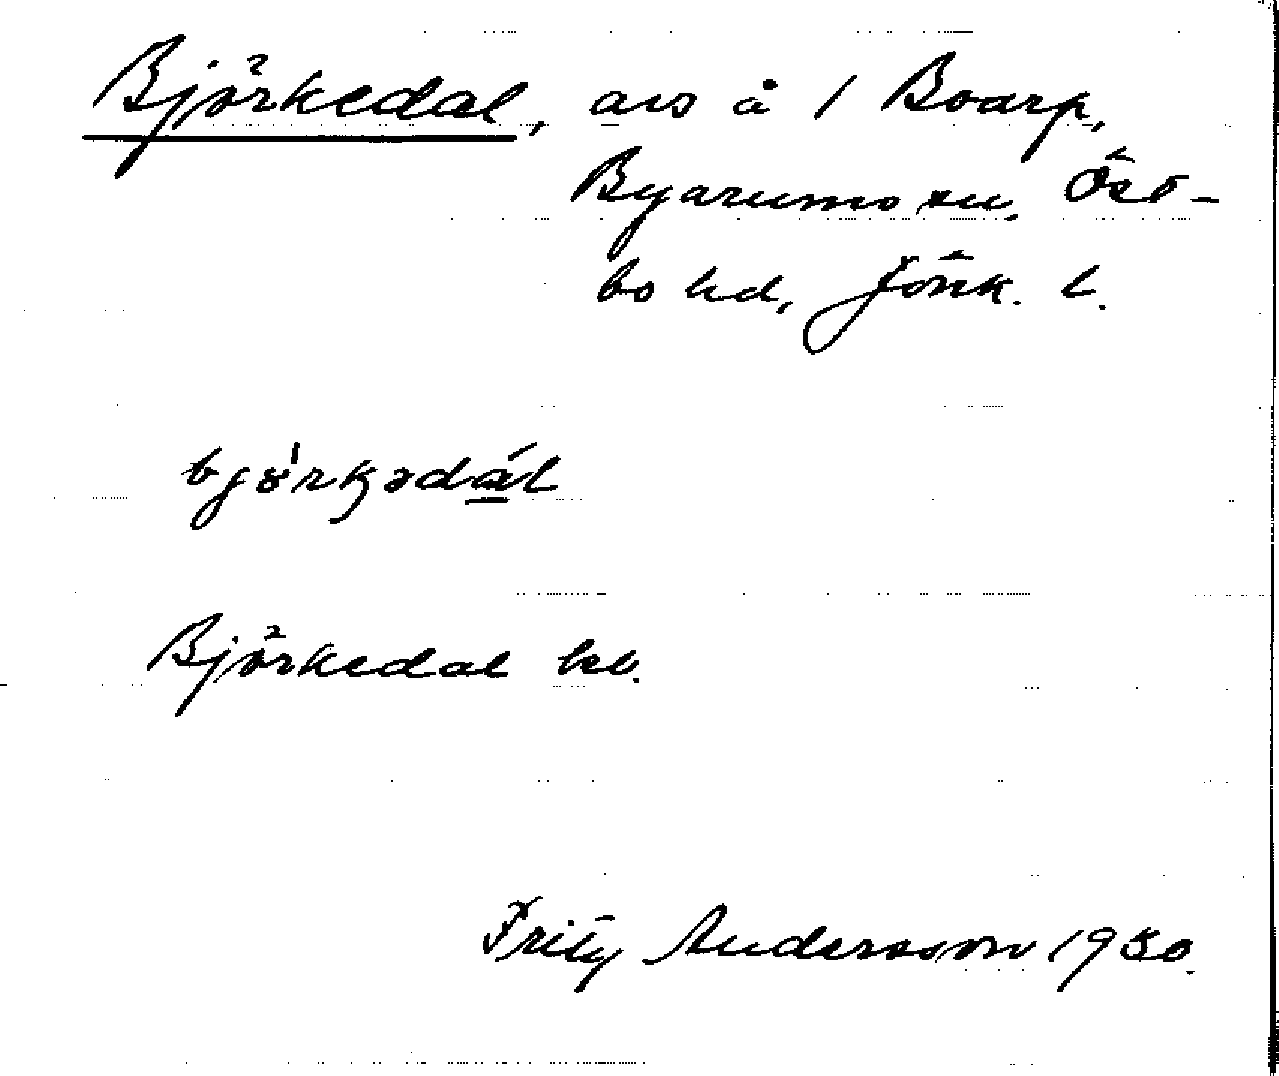 Björkedal, avs å 1 Boarp,
Byarums sn, Öst-
bo hd, Jönk. l.
björkedál
Björkedal kb.
Fritz Andersson 1930.